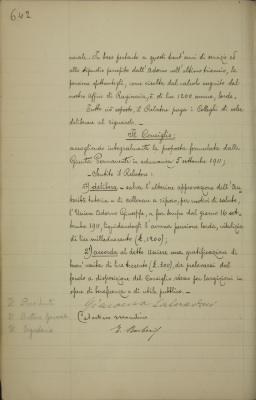 642
navale. In base pertanto a questi dent'anni di servizio ed
allo stipendio percepito dall'Adorno nell'ultimo triennio, la
pensione spettantegli, come risulta dal calcolo eseguito dal
nostro Ufficio di Ragioneria, è di lire 1200 annue, lorde.
Tutto ciò esposto, il Relatore prega i Colleghi di voler
deliberare al riguardo. -
Il Consiglio;
accogliendo integralmente la proposta formulata dalla
Giunta Permanente in adunanza 5 settembre 1911;
- Sentito il Relatore:
1° delibera - salva l'ulteriore approvazione dell'Au
torità tutoria - di collocare a riposo, per motivi di salute,
l'Usciere Adorno Giuseppe, a far tempo dal giorno 16 set-
tembre 1911, liquidandogli l'annua pensione lorda, vitalizia
di lire milleduecento (£. 1200);
2° accorda al detto Usciere una gratificazione di
buon'uscita di lire trecento (£. 300), da prelevarsi dal
fondo a disposizione del Consiglio stesso per largizioni in
opere di beneficenza e di utile pubblico. -
Il Presidente
Il Direttore Generale
Il Segretario